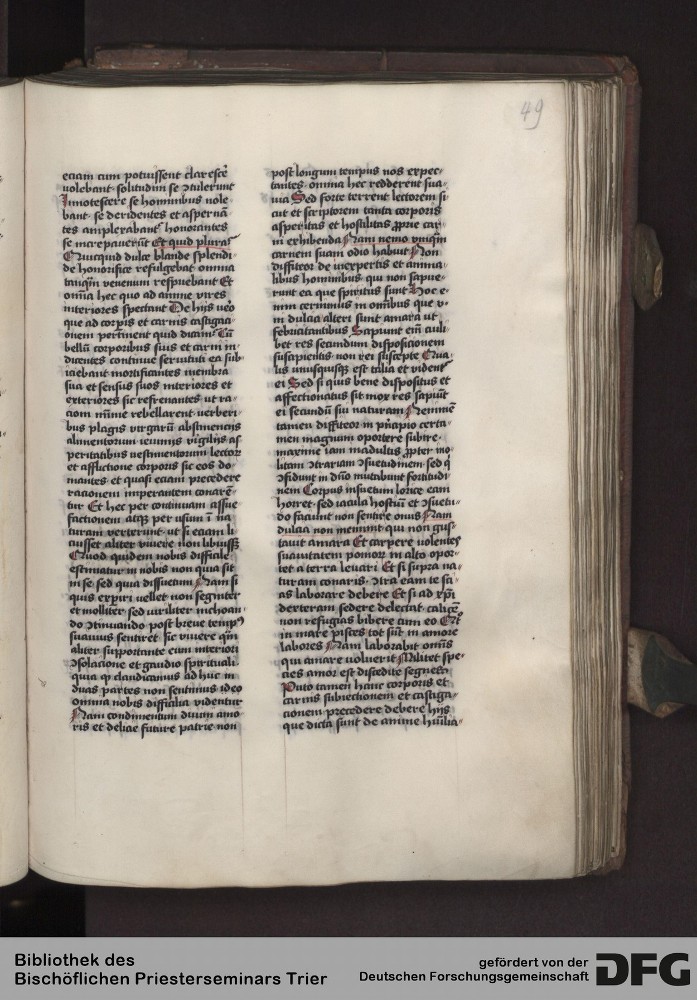 49
eciam cum potuissent clarescē
volebant· solitudini se ↄtulerunt
Innotescere se hominibus nole
bant· se deridentes et aspernā
tes amplexabant᷑ honorantes
se increpauerūt Et quid plura᷑
Quicquid dulce blande splendi
de honorifice refulgebat omnia
tanq̄m venenum respuebant Et
om̄ia hec quo ad anime vires
interiores spectant De hijs u͛o
que ad corp̄is et carnis castigaci
onem pertinent quid dicam᷑ Cū
bellū corporibus suis et carni in
dicentes continue seruituti ea sub
iciebant mortificantes membra
sua et sensus suos interiores et
exteriores sic refrenantes ut ra
cioni mīme rebellarent· verberi
bus plagis virgarū abstinencijs
alimentorum ieiunijs vigilijs as
peritatibus uestimentorum lector᷑
et afflictione corporis sic eos do
mantes et quasi eciam precedere
racionem imperantem conarē
tur Et hec per continuam assue
factionem atqꝫ per usum ī na
turam verterunt· ut si eciam li
cuisset aliter viuere non libuissꝫ
Quod quidem nobis difficile
estimatur in nobis non quia sit
in se· sed quia dissuetum Nam si
quis exp̄iri vellet non segniter
et molliter sed viriliter inchoan
do ↄtinuando post breue temp⁹
suauius sentiret· sic viuere q̄m
aliter supportante eum interiori
ↄsolacione et gaudio spirituali·
quia q̄ claudicamus ad huc in
duas partes non sentimus ideo
omnia nobis difficilia videntur
Nam condimentum diuini amo
ris et delicie future patrie non
post longum tempus nos expec
tantes· omnia hec redderent sua
uia Sed forte terrent lectorem si
cut et scriptorem tanta corporis
asperitas et hostilitas ꝓprie car
ni exhibenda Nam nemo vnq̄m
carnem suam odio habuit Non
diffiteor de inexpertis et anima
libus hominibus qui non sapue
runt ea que spiritus sunt Hoc e
nim cernimus in om̄ibus que v
ni dulcia alteri sunt amara ut
febricitantibus Sapiunt eī cuili
bet res secundum disposicionem
suscipientis· non rei suscepte Qua
lis unusquisqꝫ est talia et vident᷑
ei Sed si quis bene dispositus et
affectionatus sit mox res sapiūt
ei secundū sui naturam Neminē
tamen diffiteor in p̄ncipio certa
men magnum oportere subire·
maxime iam madultis ꝓpter mo
litam ↄtrariam ↄsuetudinem· sed q̄
ↄfidunt in dn̄o mutabunt fortitudi
nem Corpus insuetum lorice eam
horret· sed iacula hostiū et ↄsuetu
do faciunt non sentire onus Nam
dulcia non meminit qui non gus
tauit amara Et carpere volentes
suauitatem pomor᷑ in alto opor
tet a terra leuari Et si supra na
turam conaris· ↄtra eam te sci
as laborare debere Et si ad xp̄i
dexteram sedere delectat· calicē
non refugias bibere cum eo Qt᷑
in mare pisces tot sūt in amore
labores Nam laborabit om̄is
qui amare voluerit Militet spe
cies amor est discedite segnes
Puto tamen hanc corporis et
carnis subiectionem et castiga
cionem precedere debere hijs
que dicta sunt de anime hūilia
Bibliothek des
Bischöflichen Priesterseminars Trier
gefördert von der
Deutschen Forschungsgemeinschaft
DFG